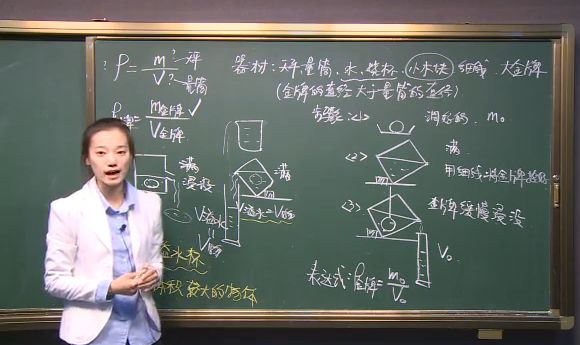 ρ=m?天平
V?量筒
ρ金牌=m金牌✓
V金牌
满
浸没
V溢水=V物
溢水杯
体积较大的物体
满
V溢水=V物
器材:天平、量筒、水、烧杯、小木块、细线、大金牌
(金牌的直径大于量筒的直径)
步骤:<1> 调平衡、m₀
<2> 满
用细线将金牌拴好
<3> 金牌缓慢浸没
V₀
表达式:ρ金牌=m₀/V₀